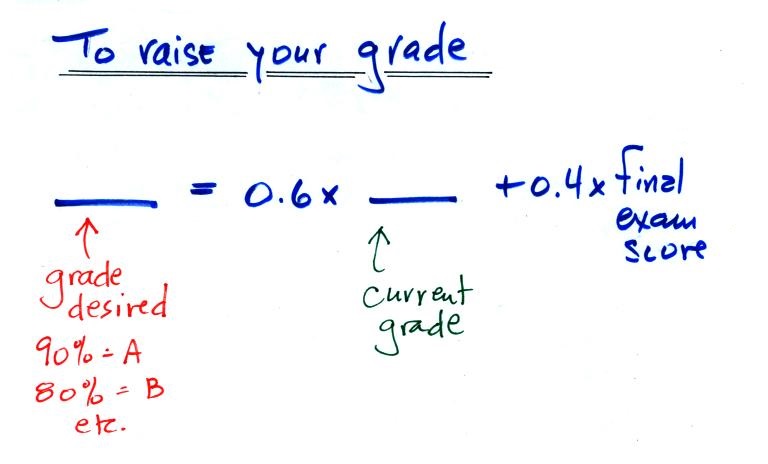 To raise your grade
___ = 0.6 x ___ + 0.4 x final
exam
score
↑ grade
desired
90% = A
80% = B
etc.
↑
current
grade